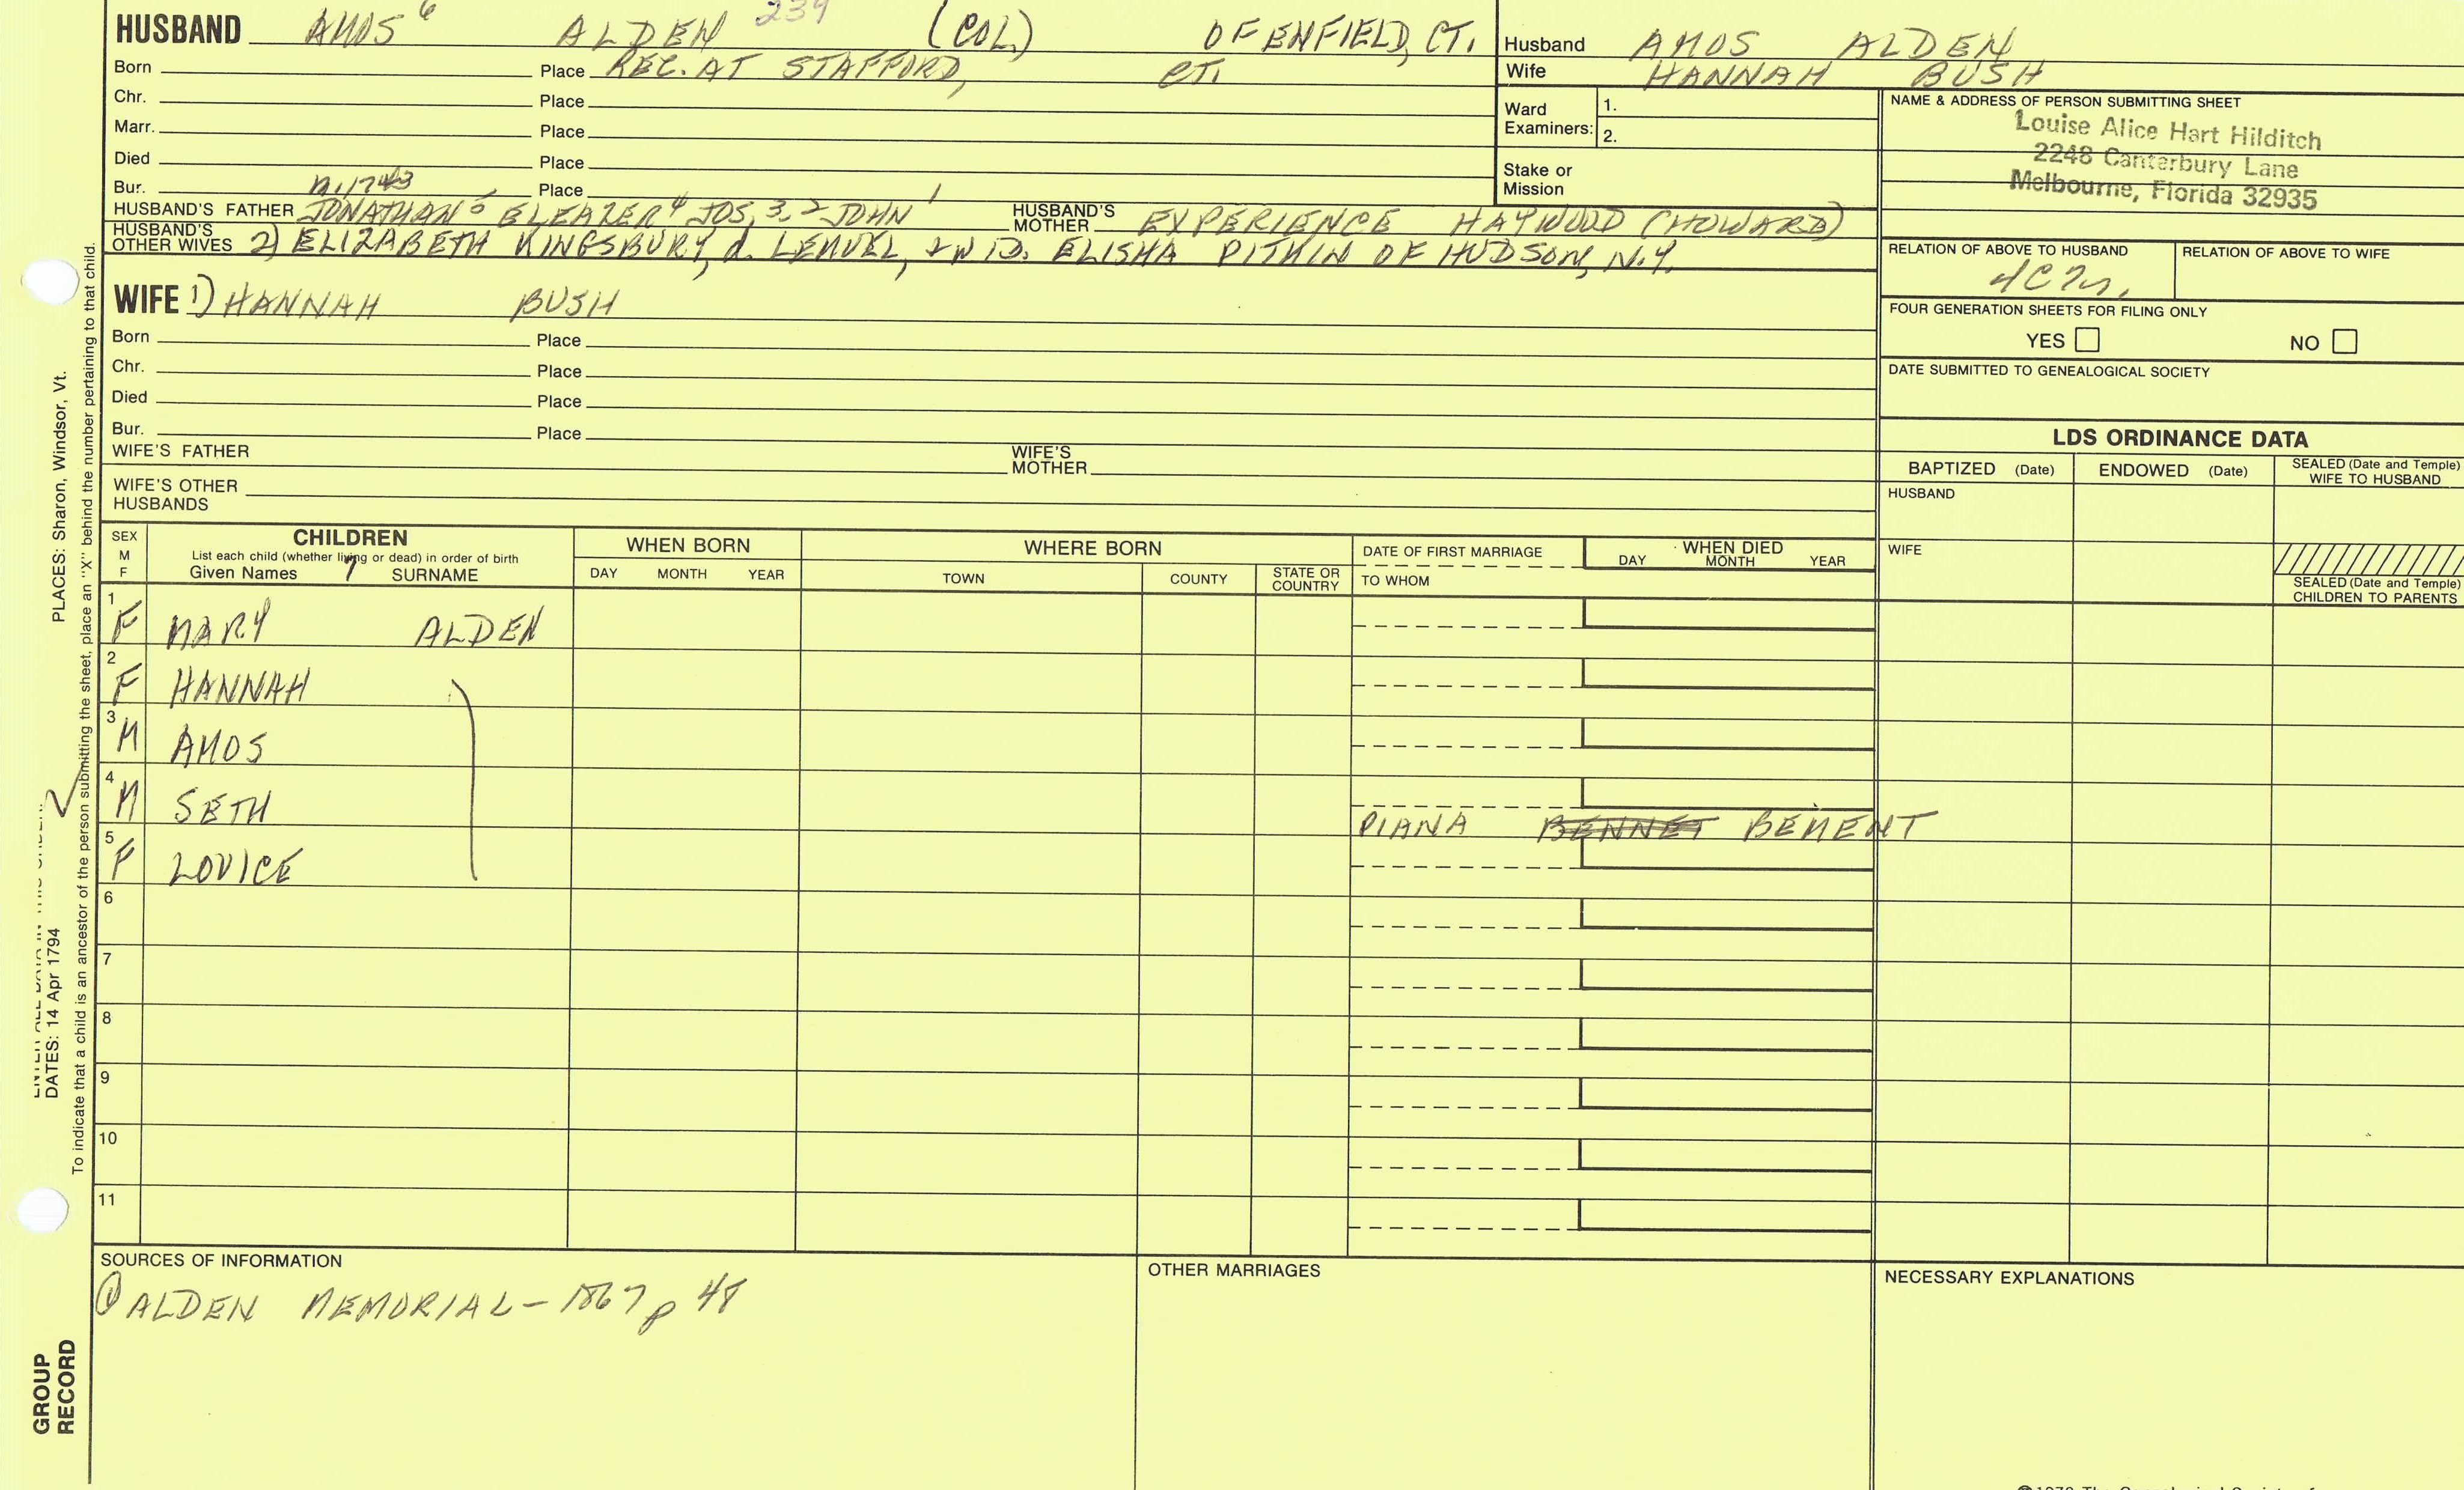 HUSBAND AMOS 6 ALDEN 239 (COL.) OF ENFIELD, CT.
Born Place REC. AT STAFFORD, CT.
Chr. Place
Marr. Place
Died Place
Bur. m. 1743 Place
HUSBAND'S FATHER JONATHAN 5 ELEAZER 4 JOS, 3, 2 JOHN 1 HUSBAND'S MOTHER EXPERIENCE HAYWOOD (HOWARD)
HUSBAND'S OTHER WIVES 2) ELIZABETH KINGSBURY, d. LEMUEL, + WID. ELISHA PITKIN OF HUDSON, N.Y.
WIFE 1) HANNAH BUSH
Born Place
Chr. Place
Died Place
Bur. Place
WIFE'S FATHER WIFE'S MOTHER
WIFE'S OTHER HUSBANDS
Husband AMOS ALDEN
Wife HANNAH BUSH
Ward Examiners: 1.
2.
Stake or Mission
NAME & ADDRESS OF PERSON SUBMITTING SHEET
Louise Alice Hart Hilditch
2248 Canterbury Lane
Melbourne, Florida 32935
RELATION OF ABOVE TO HUSBAND RELATION OF ABOVE TO WIFE
FOUR GENERATION SHEETS FOR FILING ONLY
YES NO
DATE SUBMITTED TO GENEALOGICAL SOCIETY
LDS ORDINANCE DATA
BAPTIZED (Date) ENDOWED (Date) SEALED (Date and Temple) WIFE TO HUSBAND
HUSBAND
WIFE
SEALED (Date and Temple) CHILDREN TO PARENTS
SEX M F CHILDREN WHEN BORN WHERE BORN DATE OF FIRST MARRIAGE WHEN DIED
List each child (whether living or dead) in order of birth
Given Names 7 SURNAME DAY MONTH YEAR TOWN COUNTY STATE OR COUNTRY TO WHOM DAY MONTH YEAR
1 F MARY ALDEN
2 F HANNAH
3 M AMOS
4 M SETH DIANA BENNET BEMENT
5 F LOVICE
6
7
8
9
10
11
SOURCES OF INFORMATION
① ALDEN MEMORIAL - 1867 p 48
OTHER MARRIAGES
NECESSARY EXPLANATIONS
PLACES: Sharon, Windsor, Vt.
DATES: 14 Apr 1794
To indicate that a child is an ancestor of the person submitting the sheet, place an "X" behind the number pertaining to that child.
GROUP RECORD